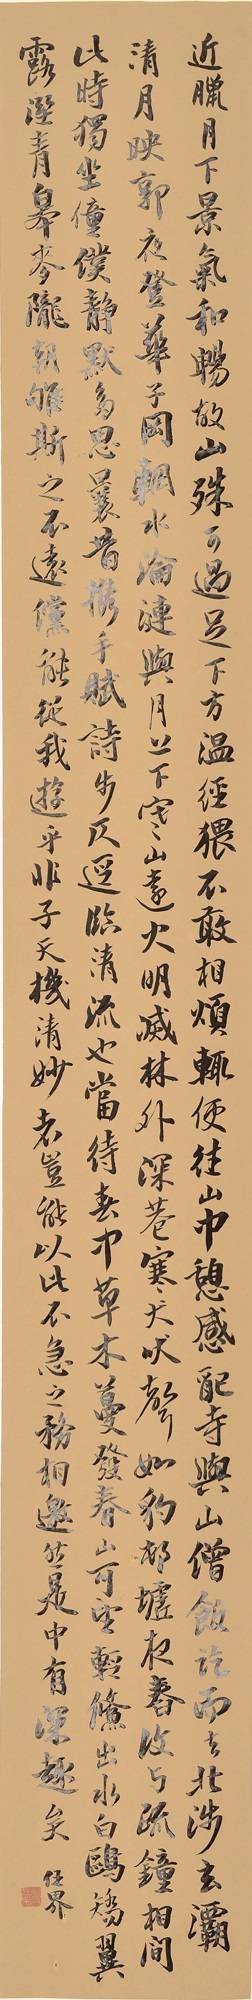 近臘月下景氣和暢故山殊可過足下方温經猥不敢相煩輒便往山中憩感配寺與山僧飯訖而去北涉玄灞
清月映郭夜登華子岡輞水淪漣與月上下寒山遠火明滅林外深巷寒犬吠聲如豹邨墟夜舂復与疏鐘相間
此時獨坐僮僕靜默多思曩昔携手賦詩步仄逕臨清流也當待春中草木蔓發春山可望輕鯈出水白鷗矯翼
露溼青皋麥隴朝雊斯之不遠儻能從我遊乎非子天機清妙者豈能以此不急之務相邀然是中有深趣矣 任界